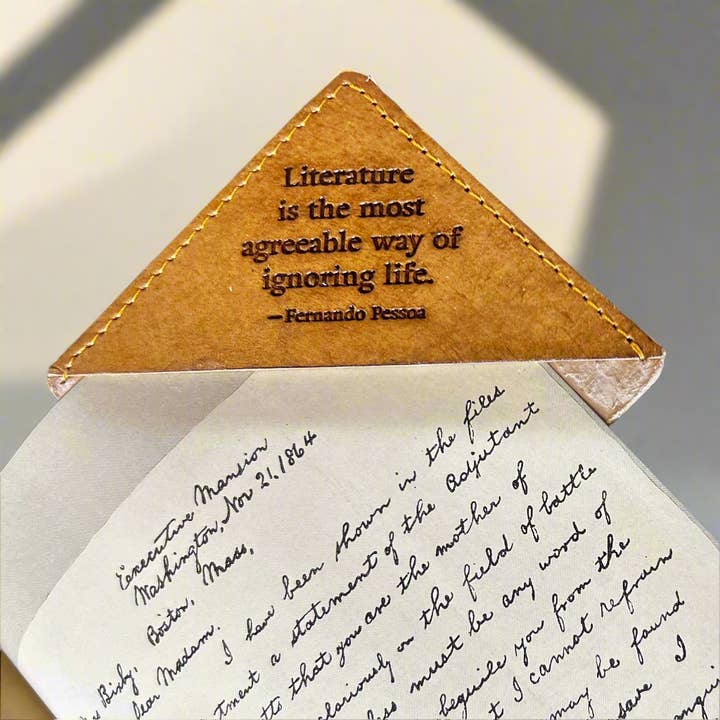 Literature
is the most
agreeable way of
ignoring life.
—Fernando Pessoa
Executive Mansion
Washington, Nov 21, 1864
Bixby,
Boston, Mass,
Dear Madam.
I have been shown in the files
tment a statement of the Adjutant
that you are the mother of
gloriously on the field of battle
less must be any word of
beguile you from the
t I cannot refrain
may be found
save I